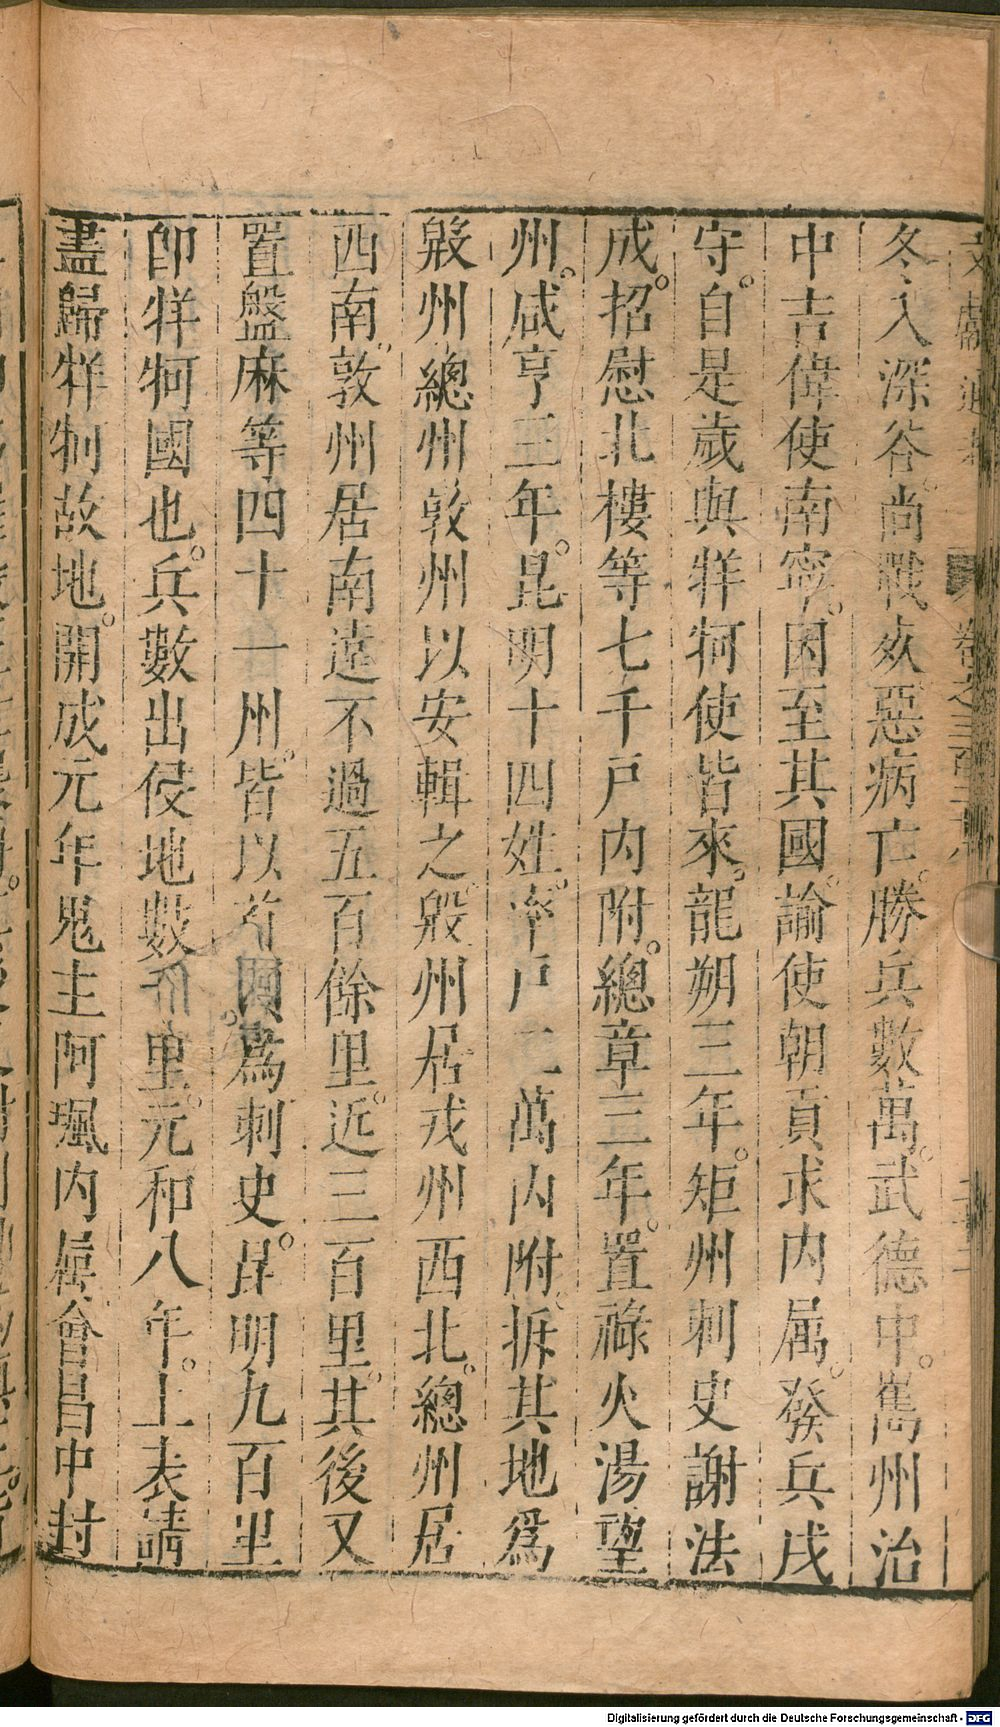 文獻通考 卷之三百二十八
冬入深谷尚戰死惡病亡。勝兵數萬。武德中。嶲州治
中吉偉使南寧。因至其國。諭使朝貢求內属。發兵戍
守。自是歲與牂牁使皆來。龍朔三年。矩州刺史謝法
成。招慰北樓等七千戶內附。總章三年。置祿火湯望
州。咸亨三年。昆明十四姓。率戶二萬內附。拆其地爲
殷州總州敦州以安輯之。殷州居戎州西北。總州居
西南。敦州居南遠不過五百餘里。近三百里。其後又
置盤麻等四十一州。皆以首領爲刺史。昆明九百里
卽牂牁國也。兵數出侵地數千里。元和八年。上表請
盡歸牂牁故地。開成元年鬼主阿珮內屬。會昌中封
Digitalisierung gefördert durch die Deutsche Forschungsgemeinschaft - DFG